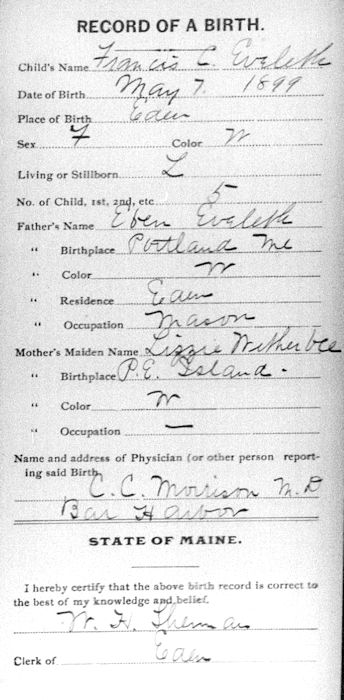 RECORD OF A BIRTH.
Child's Name Francis C. Eveleth
Date of Birth May 7. 1899
Place of Birth Eden
Sex F Color W
Living or Stillborn L
No. of Child, 1st, 2nd, etc. 5
Father's Name Eben Eveleth
" Birthplace Portland Me
" Color W
" Residence Eden
" Occupation Mason
Mother's Maiden Name Lizzie Witherbee
" Birthplace P.E. Island.
" Color W
" Occupation —
Name and address of Physician (or other person report-
ing said Birth
C. C. Morrison M.D
Bar Harbor
STATE OF MAINE.
I hereby certify that the above birth record is correct to
the best of my knowledge and belief.
W. H. Sherman
Clerk of Eden